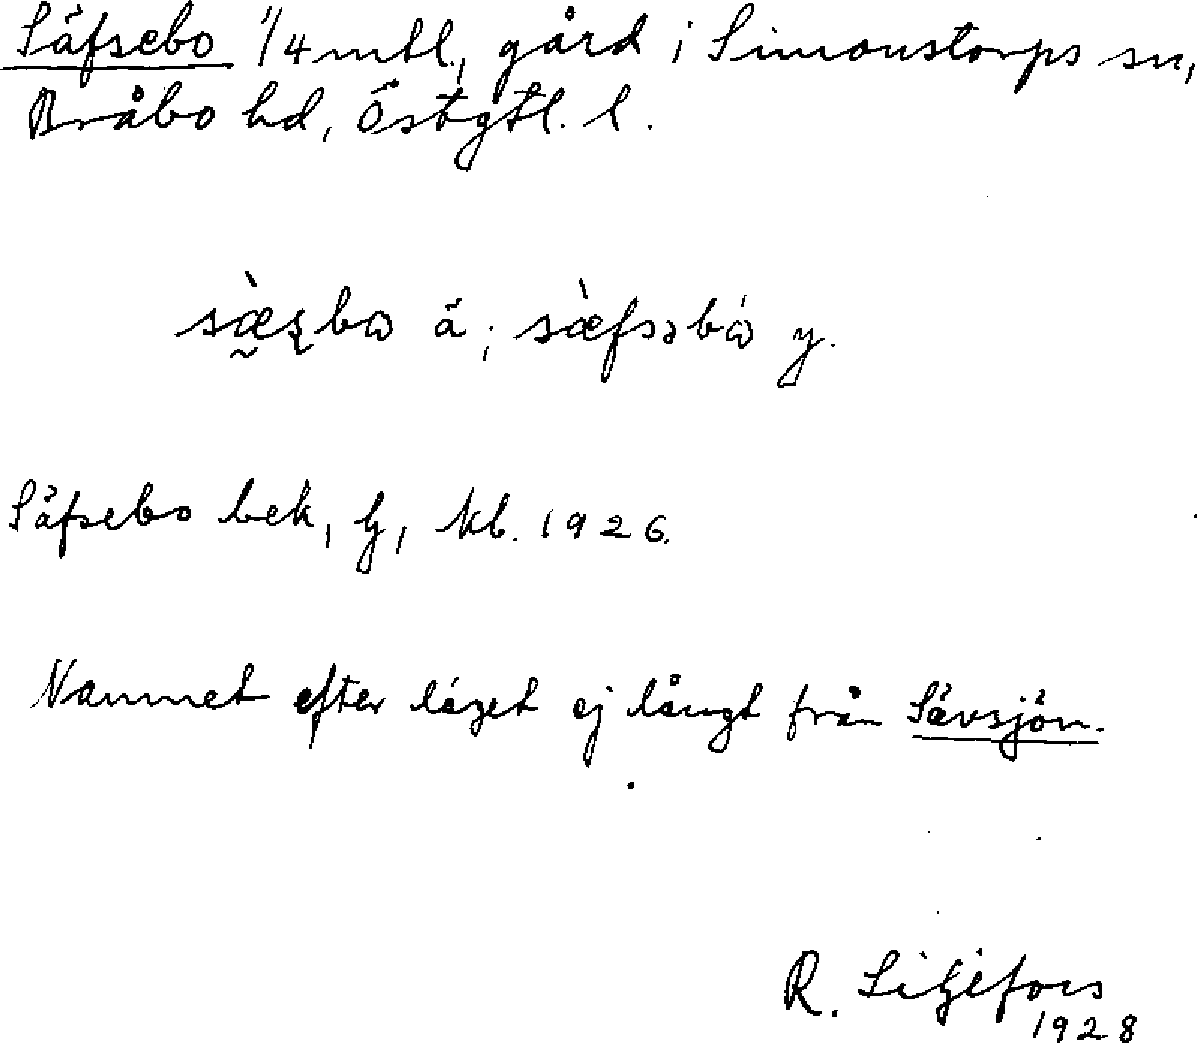 Säfsebo 1/4 mtl., gård i Simonstorps sn,
Bråbo hd, Östgtl. l.
sæ̀ʂbɷ ä; sæ̀fsəbɷ́ y.
Säfsebo bek, lj, kb. 1926.
Namnet efter läget ej långt från Sävsjön.
R. Liljefors
1928